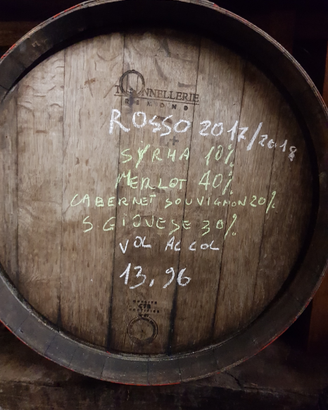 TONNELLERIE
ROSSO 2017/2018
SYRHA 10%
MERLOT 40%
CABERNET SOUVIGNON 20%
S.GIOVESE 30%
VOL ALCOL
13,96